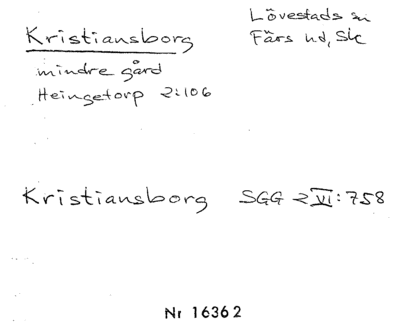 Kristiansborg
mindre gård
Heingetorp 2:106
Lövestads sn
Färs hd, Sk
Kristiansborg SGG 2 VI: 758
Nr 16362